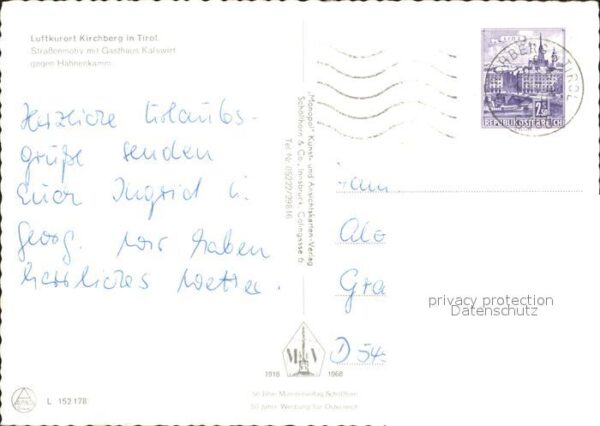 Luftkurort Kirchberg in Tirol
Straßenmotiv mit Gasthaus Kalswirt
gegen Hahnenkamm
Herzliche Urlaubs-
grüße senden
Euch Ingrid u.
Georg. Wir haben
herrliches Wetter.
"Monopol" Kunst- und Ansichtskarten-Verlag
Schöllhorn & Co., Innsbruck, Colingasse 6
Tel. Nr. (05222)
TIROL
2,50
REPUBLIK ÖSTERREICH
Fam
Alo
Gra
D 54
privacy protection
Datenschutz
1918 1968
50 Jahre Monopolverlag Schöllhorn
50 Jahre Werbung für Österreich
L 152 178